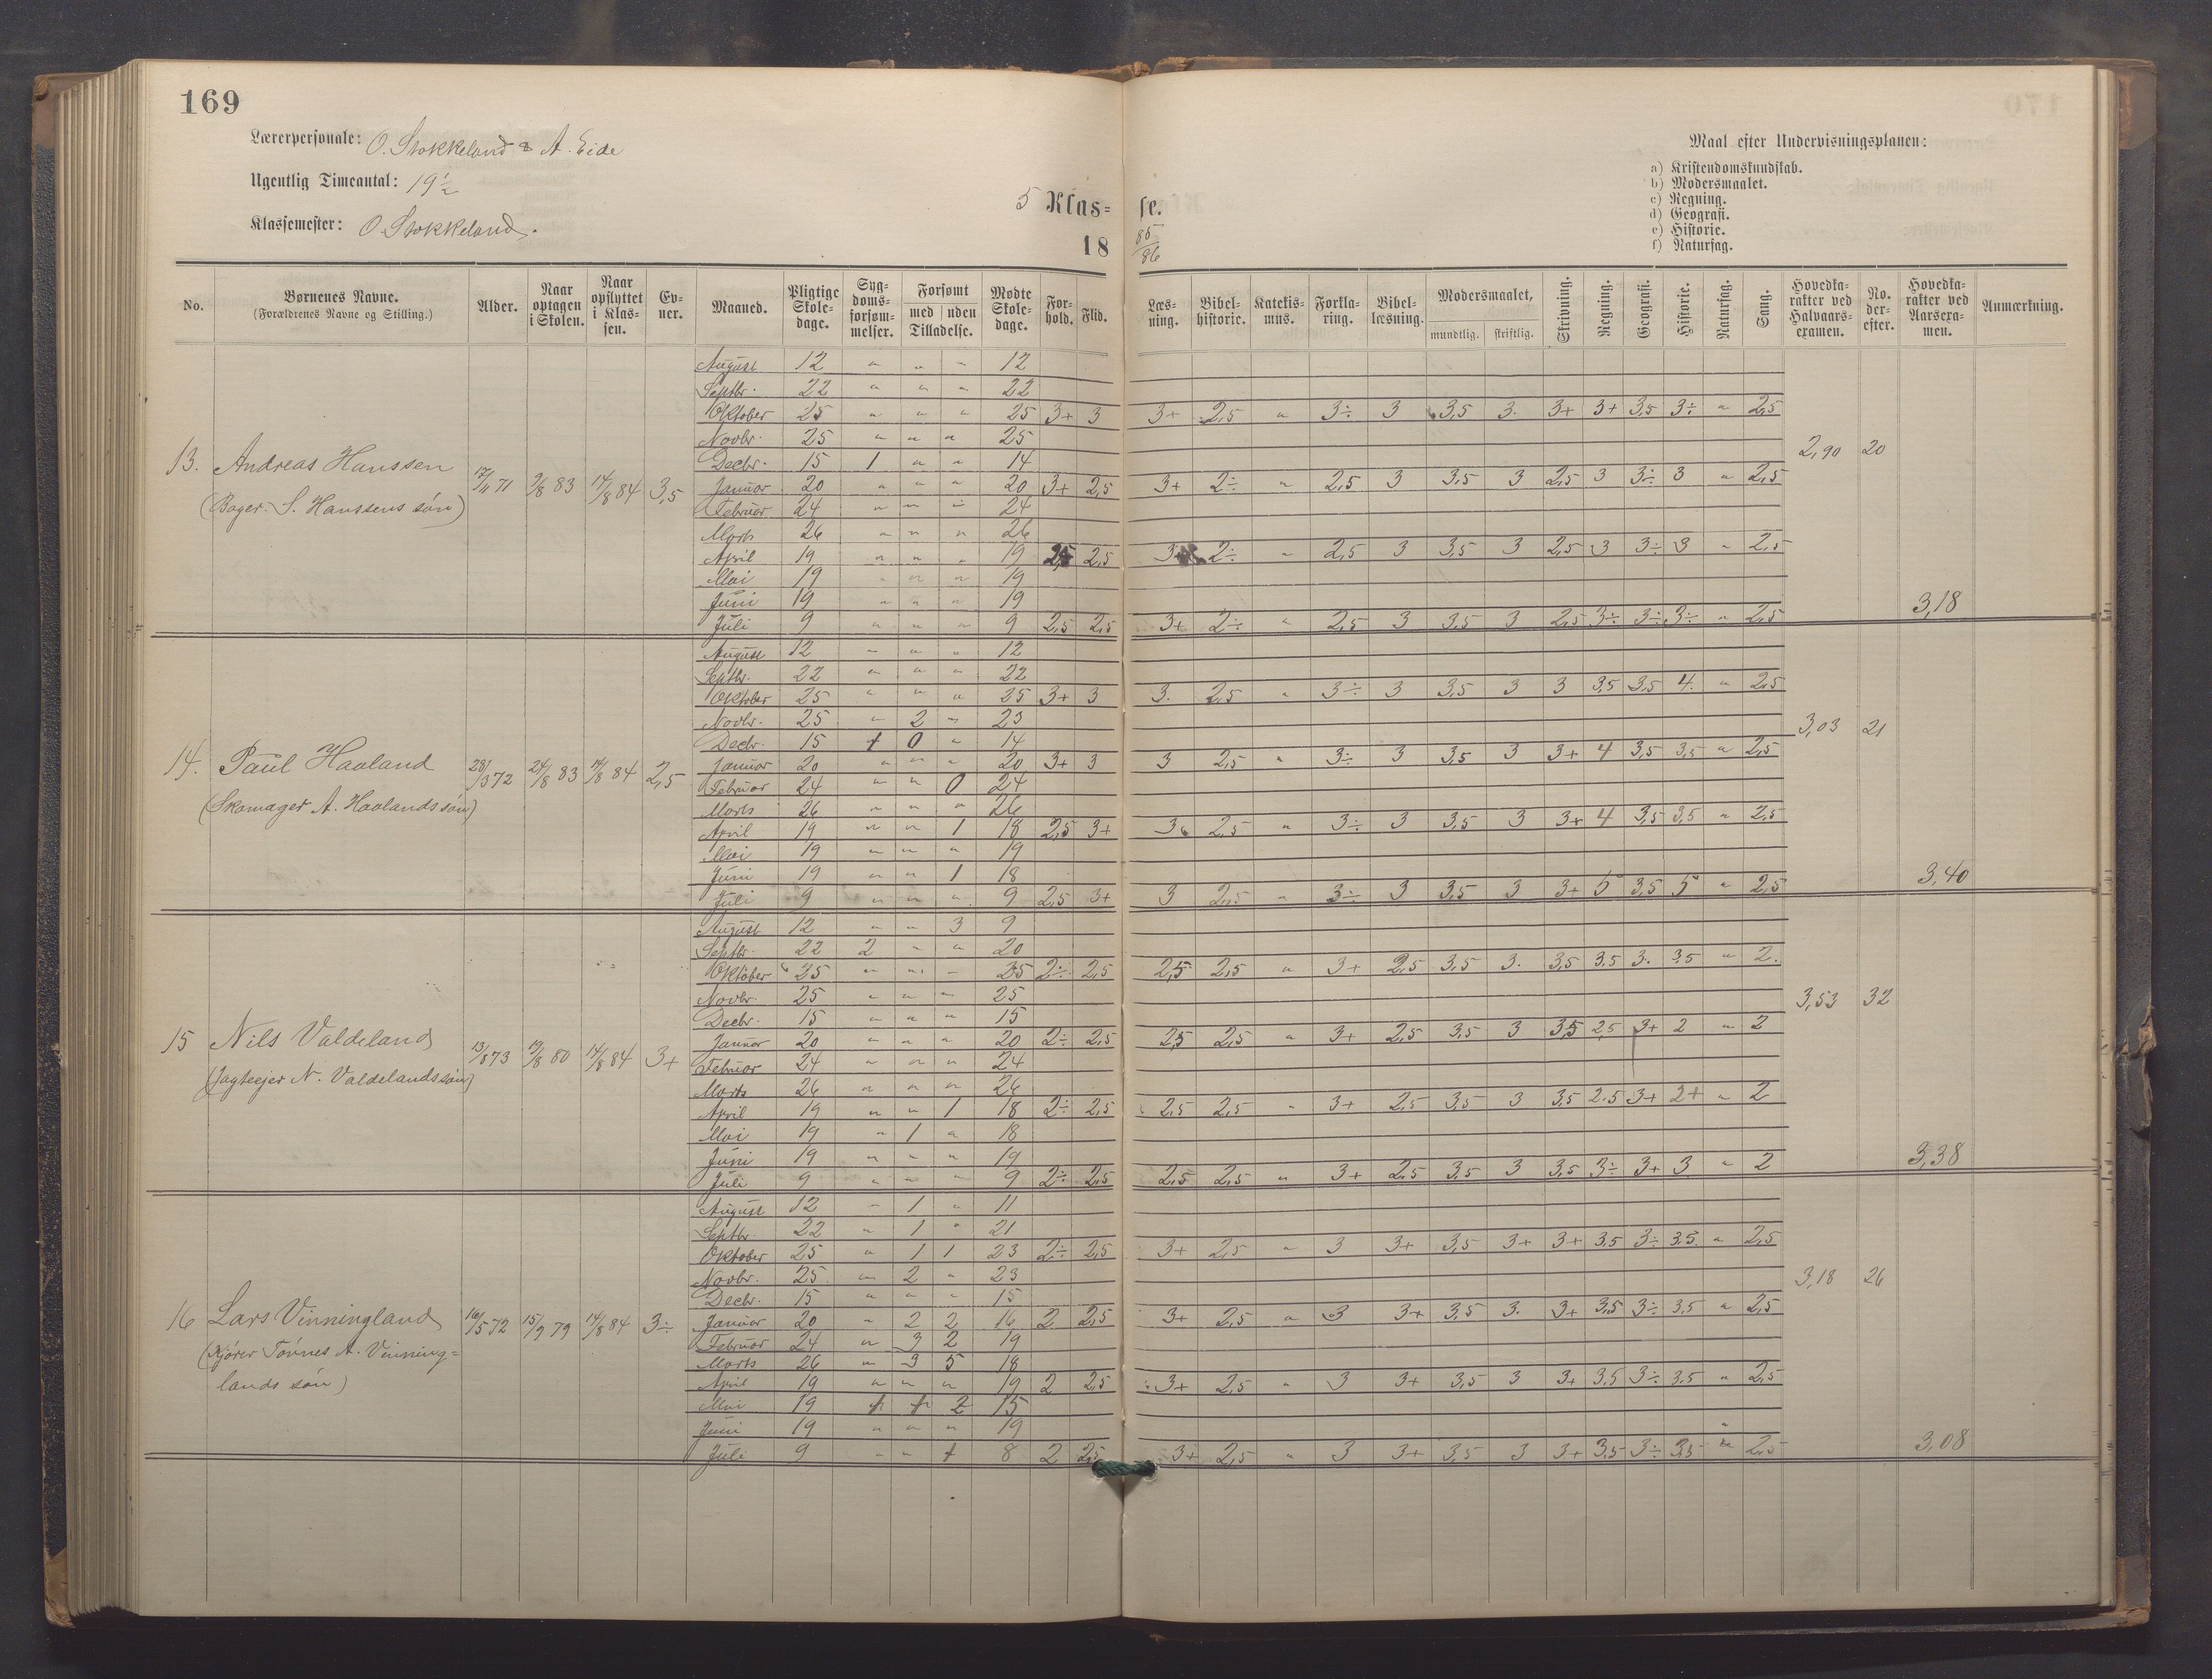 169
Lærerpersonale: O. Stokkeland & A. Eide
Ugentlig Timeantal: 19½
Klassemester: O. Stokkeland.
5 Klas= se.
18 85/86
Maal efter Undervisningsplanen:
a) Kristendomskundskab.
b) Modersmaalet.
c) Regning.
d) Geografi.
e) Historie.
f) Naturfag.
No. | Børnenes Navne. (Forældrenes Navne og Stilling.) | Alder. | Naar optagen i Skolen. | Naar opflyttet i Klassen. | Evner. | Maaned. | Pligtige Skoledage. | Sygdomsforsømmelser. | Forsømt med / uden Tilladelse. | Mødte Skoledage. | Forhold. | Flid. | Læsning. | Bibelhistorie. | Katekismus. | Forklaring. | Bibellæsning. | Modersmaalet, mundtlig. | skriftlig. | Skrivning. | Regning. | Geografi. | Historie. | Naturfag. | Sang. | Hovedkarakter ved Halvaarsexamen. | No. derefter. | Hovedkarakter ved Aarsexamen. | Anmærkning.
13. Andreas Hanssen
(Bager S. Hanssens søn)
17/11 71 | 9/8 83 | 14/8 84 | 3,5
August 12 " " " 12
Septbr. 22 " " " 22
Oktober 25 " " " 25 3+ 3 3+ 2,5 " 3÷ 3 3,5 3. 3+ 3+ 3,5 3÷ " 2,5
Novbr. 25 " " " 25
Decbr. 15 1 " " 14
2,90 20
Januar 20 " " " 20 3+ 2,5 3+ 2÷ " 2,5 3 3,5 3 2,5 3 3÷ 3 " 2,5
Februar 24 " " " 24
Marts 26 " " " 26
April 19 " " " 19 2,5 2,5 3+ 2÷ " 2,5 3 3,5 3 2,5 3 3÷ 3 " 2,5
Mai 19 " " " 19
Juni 19 " " " 19
Juli 9 " " " 9 2,5 2,5 3+ 2÷ " 2,5 3 3,5 3 2,5 3÷ 3÷ 3÷ " 2,5
3,18
14. Paul Haaland
(Skomager A. Haalands søn)
28/3 72 | 24/8 83 | 14/8 84 | 2,5
August 12 " " " 12
Septbr. 22 " " " 22
Oktober 25 " " " 25 3+ 3 3. 2,5 " 3÷ 3 3,5 3 3 3,5 3,5 4. " 2,5
Novbr. 25 " 2 " 23
Decbr. 15 1 0 " 14
3,03 21
Januar 20 " " " 20 3+ 3 3 2,5 " 3÷ 3 3,5 3 3+ 4 3,5 3,5 " 2,5
Februar 24 " " 0 24
Marts 26 " " " 26
April 19 " " 1 18 2,5 3+ 3 2,5 " 3÷ 3 3,5 3 3+ 4 3,5 3,5 " 2,5
Mai 19 " " " 19
Juni 19 " " 1 18
Juli 9 " " " 9 2,5 3+ 3 2,5 " 3÷ 3 3,5 3 3+ 5 3,5 5 " 2,5
3,40
15 Nils Valdeland
(Jagteejer N. Valdelands søn)
13/8 73 | 19/8 80 | 14/8 84 | 3+
August 12 " " 3 9
Septbr. 22 2 " " 20
Oktober 25 " " " 25 2÷ 2,5 2,5 2,5 " 3+ 2,5 3,5 3. 3,5 3,5 3. 3,5 " 2.
Novbr. 25 " " " 25
Decbr. 15 " " " 15
3,53 32
Januar 20 " " " 20 2÷ 2,5 2,5 2,5 " 3+ 2,5 3,5 3 3,5 2,5 3+ 2 " 2
Februar 24 " " " 24
Marts 26 " " " 26
April 19 " " 1 18 2÷ 2,5 2,5 2,5 " 3+ 2,5 3,5 3 3,5 2.5 3+ 2+ " 2
Mai 19 " 1 " 18
Juni 19 " " " 19
Juli 9 " " " 9 2÷ 2,5 2,5 2,5 " 3+ 2,5 3,5 3 3,5 3÷ 3+ 3. " 2
3,38
16 Lars Vinningland
(Kjører Tønnes A. Vinning=
lands søn)
16/5 72 | 15/9 79 | 14/8 84 | 3÷
August 12 " 1 " 11
Septbr. 22 " 1 " 21
Oktober 25 " 1 1 23 2÷ 2,5 3+ 2,5 " 3 3+ 3,5 3+ 3+ 3,5 3÷ 3,5. " 2,5
Novbr. 25 " 2 " 23
Decbr. 15 " " " 15
3,18 26
Januar 20 " 2 2 16 2 2,5 3+ 2,5 " 3 3+ 3,5 3. 3+ 3,5 3÷ 3,5 " 2,5
Februar 24 " 3 2 19
Marts 26 " 3 5 18
April 19 " " " 19 2 2,5 3+ 2,5 " 3 3+ 3,5 3 3+ 3,5 3÷ 3,5 " 2,5
Mai 19 2 15
Juni 19 " " " 19
Juli 9 " " 1 8 2 2,5 3+ 2,5 " 3 3+ 3,5 3 3+ 3,5 3÷ 3,5 " 2,5
3,08